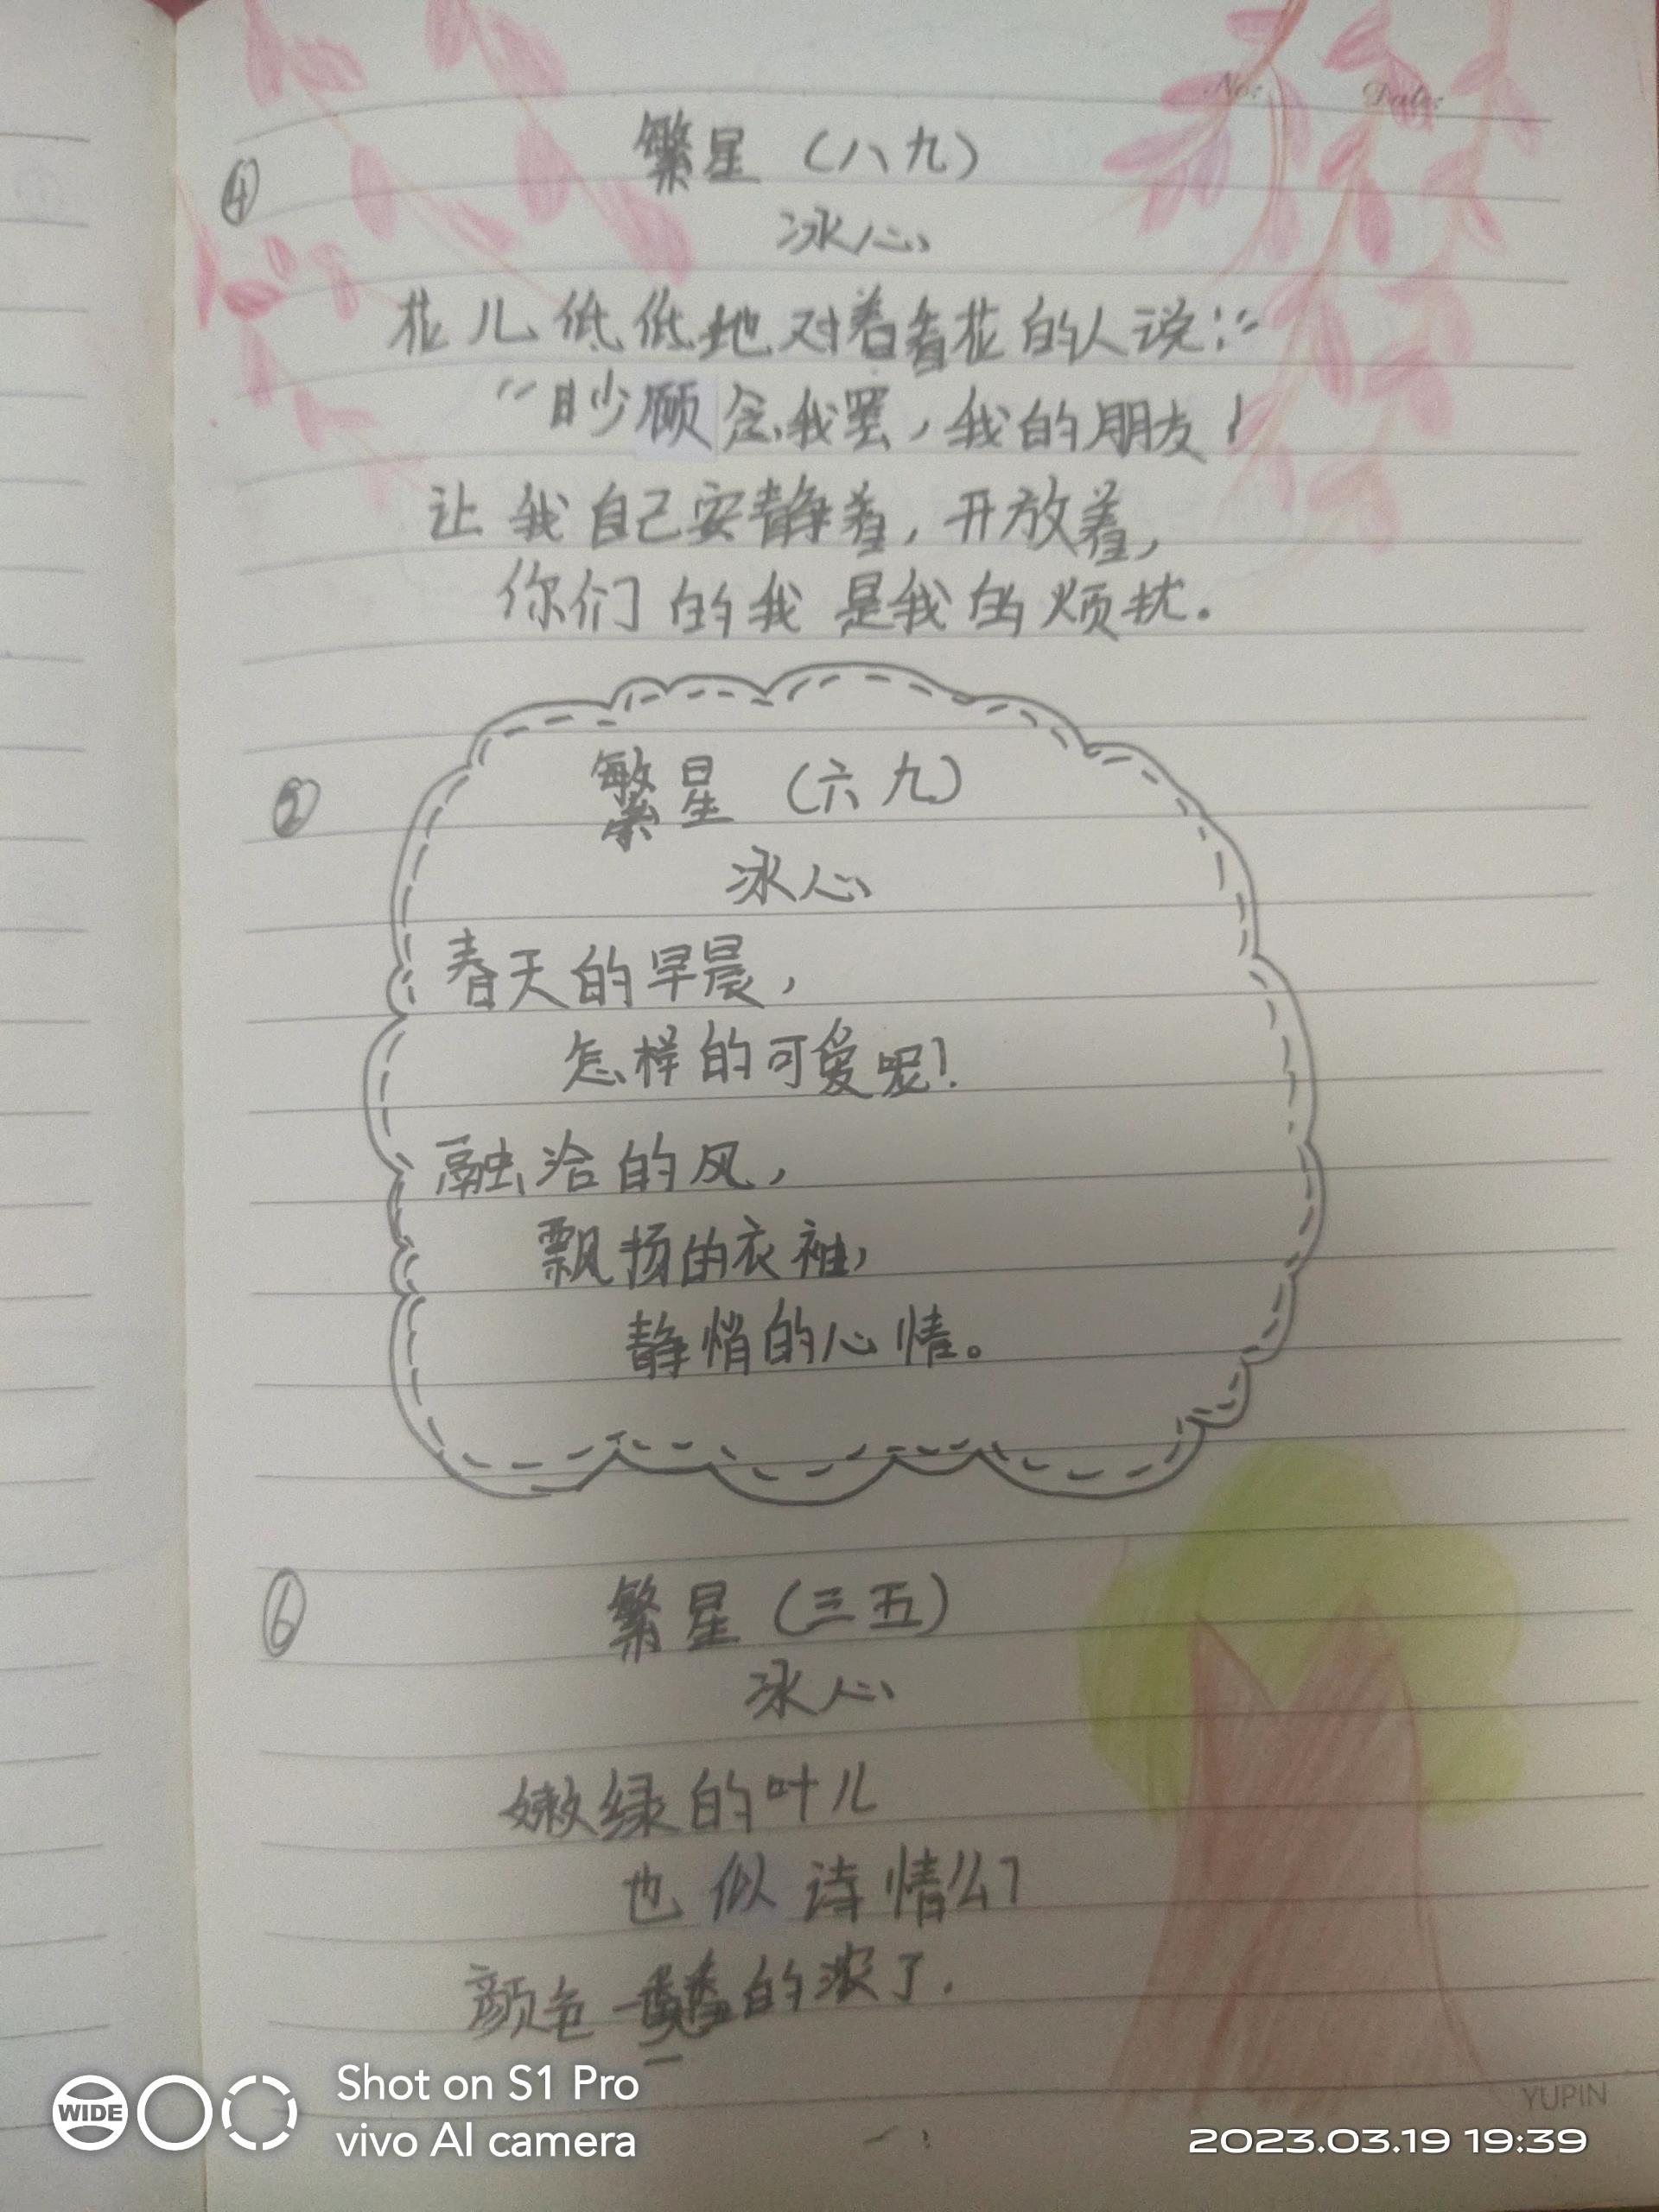 No: Date:
④ 繁星（八九）
冰心
花儿低低地对着看花的人说：“
“少顾念我罢，我的朋友！
让我自己安静着，开放着，
你们的我是我的烦扰.
⑤ 繁星（六九）
冰心
春天的早晨，
怎样的可爱呢！
融洽的风，
飘扬的衣袖，
静悄的心情。
⑥ 繁星（三五）
冰心
嫩绿的叶儿
也似诗情么？
颜色一番番的浓了.
YUPIN
WIDE
Shot on S1 Pro
vivo AI camera
2023.03.19 19:39